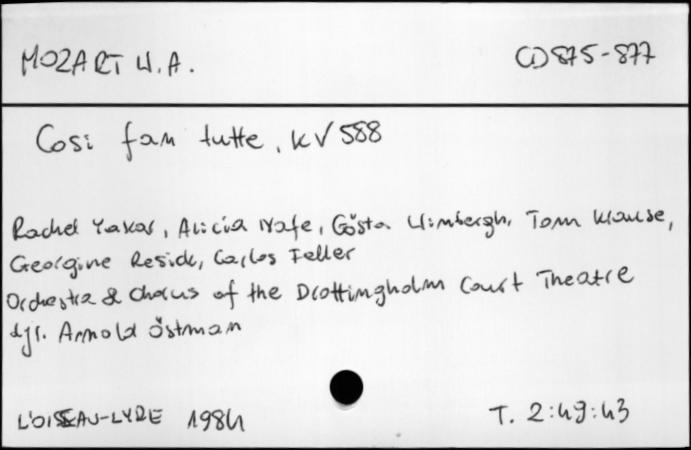 MOZART W.A.
CD 875-877
Cosi fan tutte, KV 588
Rachel Yakar, Alicia Nafe, Gösta Winbergh, Tom Krause,
Georgine Resick, Carlos Feller
Orchestra & Chorus of the Drottingholm Court Theatre
dji. Arnold Östman
L'OISEAU-LYRE 1984
T. 2:49:43